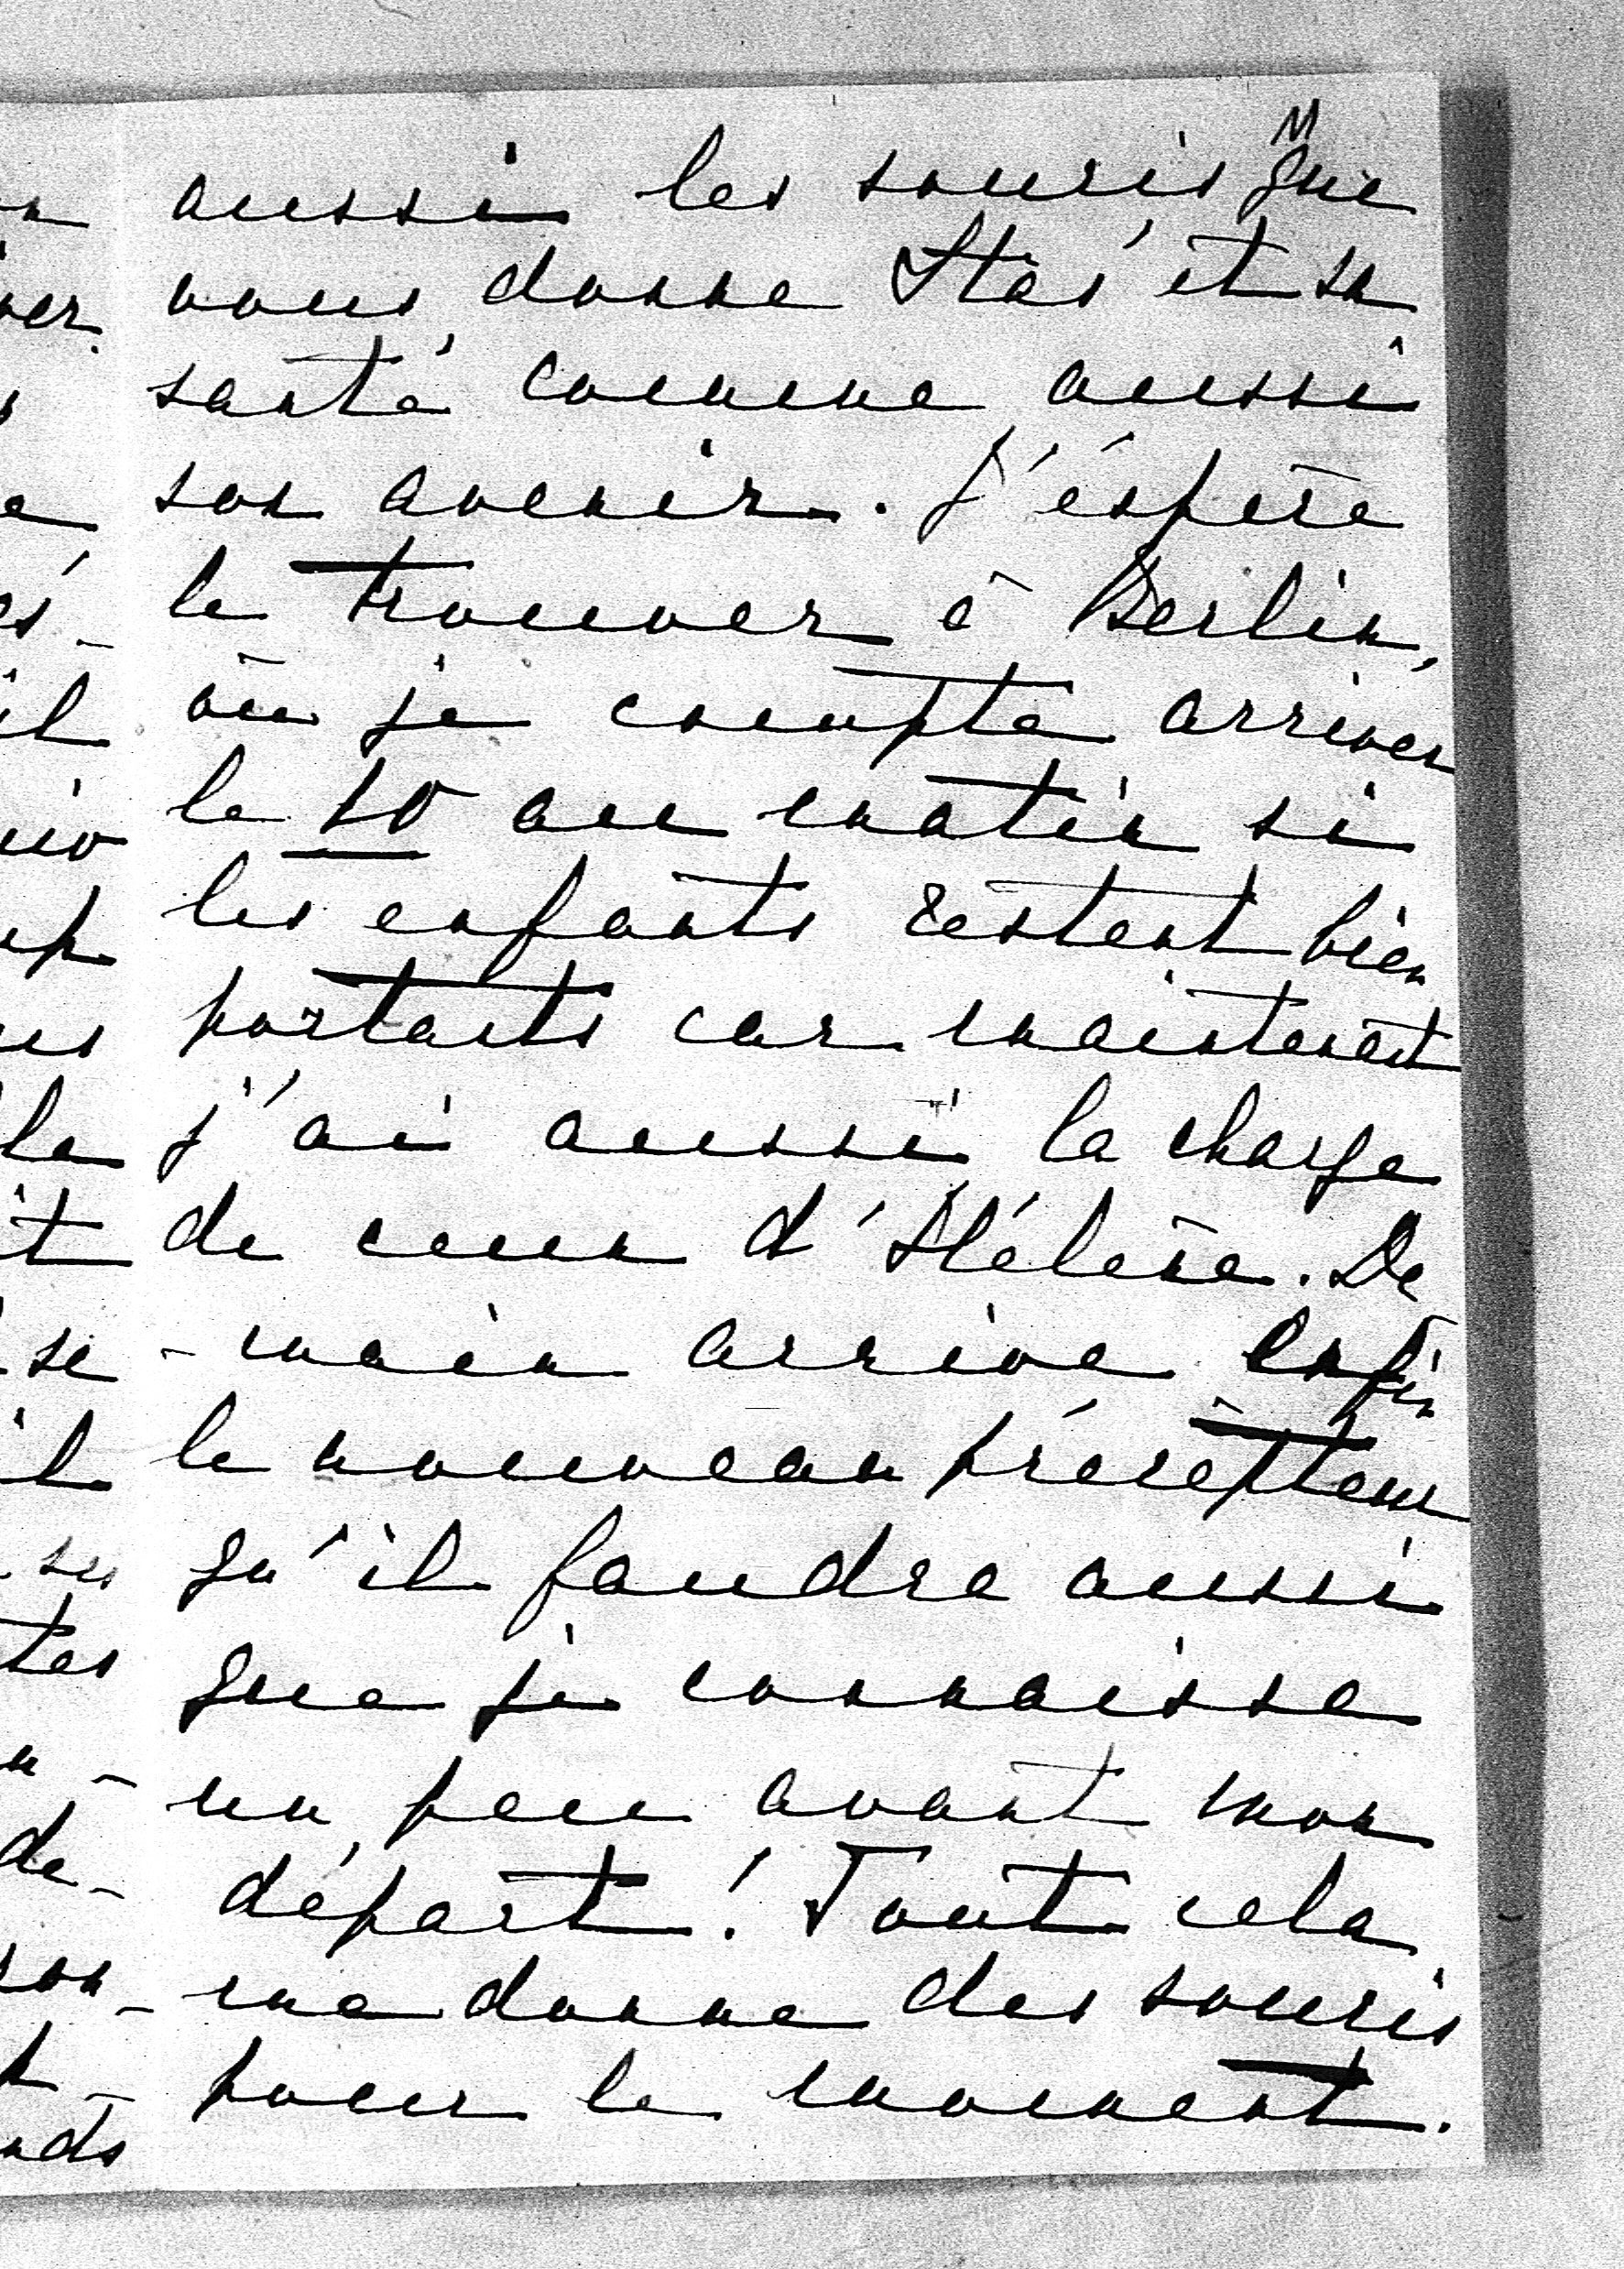 aussi les souris que
nous donne Staś et sa
santé comme aussi
son avenir. J'éspère
le trouver à Berlin,
où je compte arriver
le 10 au matin si
les enfants restent bien
portants car maintenant
j'ai aussi la charge
de ceux d'Hélène. De
-main arrive enfin
le nouveau précepteur
qu'il faudra aussi
que je connaisse
un peu avant mon
départ! Tout cela
me donne des souris
pour le moment.